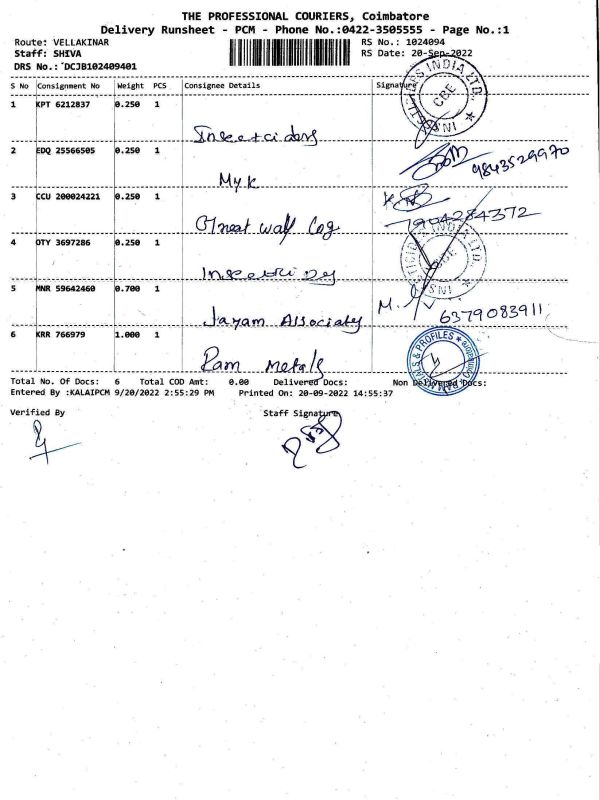 THE PROFESSIONAL COURIERS, Coimbatore
Delivery Runsheet - PCM - Phone No.:0422-3505555 - Page No.:1
Route: VELLAKINAR
RS No.: 1024094
Staff: SHIVA
RS Date: 20-Sep-2022
DRS No.: DCJB102409401
S No Consignment No Weight PCS Consignee Details Signature
1 KPT 6212837 0.250 1
INSECTICIDES INDIA LTD. CBE
2 EDQ 25566505 0.250 1
Myk 9843529970
3 CCU 200024221 0.250 1
Great wall Cog 7904284372
4 OTY 3697286 0.250 1
INSECTICIDES INDIA LTD. CBE
5 MNR 59642460 0.700 1
Jayam Associates M. 6379083911
6 KRR 766979 1.000 1
Ram Metals
RAM METALS & PROFILES Coimbatore
Total No. Of Docs: 6 Total COD Amt: 0.00 Delivered Docs: Non Delivered Docs:
Entered By :KALAIPCM 9/20/2022 2:55:29 PM Printed On: 20-09-2022 14:55:37
Verified By Staff Signature